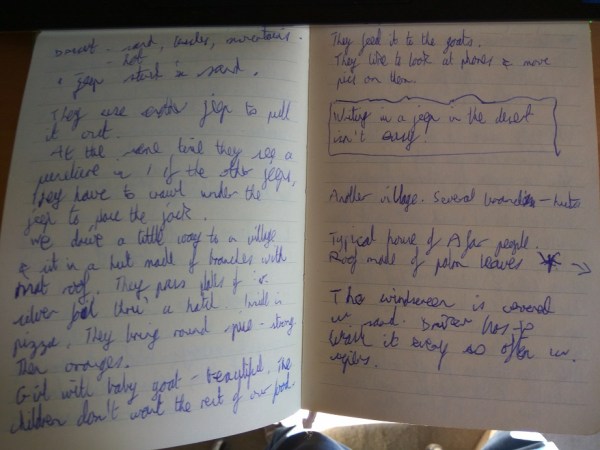 Desert - sand, rocks, mountains.
- hot
jeep stuck in sand.
They use other jeep to pull
it out.
At the same time they see a
puncture in 1 of the other jeeps.
They have to crawl under the
jeep to place the jack.
We drive a little way to a village
& sit in a hut made of branches with
mat roof. They pass plates of
silver foil thru' a hatch. Inside is
pizza. They bring round - strong
Then oranges.
Girl with baby goat - beautiful. The
children don't want the rest of our food.
They feed it to the goats.
They like to look at phones & move
pics on them.
Writing in a jeep in the desert
isn't easy.
Another village. Several - huts
Typical house of Afar people.
Roof made of palm leaves
The windscreen is covered
in sand. Driver has to
wash it every so often w.
wipers.